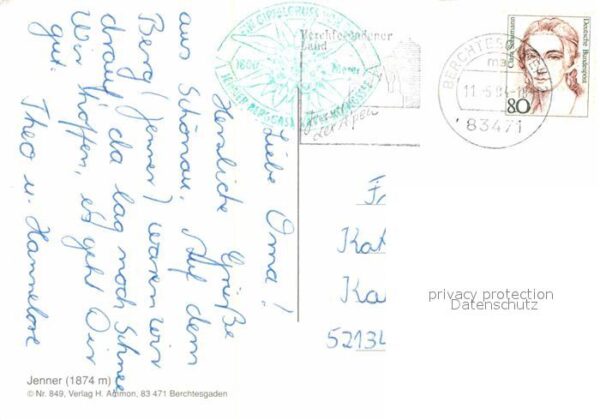 Liebe Oma!
Herzliche Grüße
aus Schönau. Auf dem
Berg (Jenner) waren wir
drauf, da lag noch Schnee
Wir hoffen, es geht Dir
gut. Theo u. Hannelore
Jenner (1874 m)
© Nr. 849, Verlag H. Ammon, 83 471 Berchtesgaden
1800 Meter
Berchtesgadener
Land
der Alpen
BERCHTESGADEN
ma
83471
80
Clara Schumann
Deutsche Bundespost
Kat
Ka
52134
privacy protection
Datenschutz